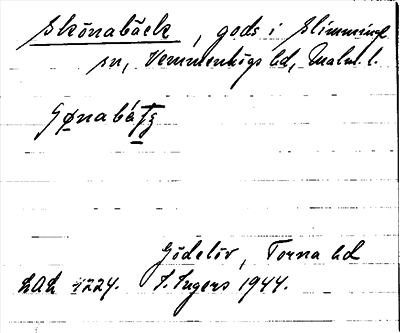 Skönabäck, gods i Slimminge
sn, Vemmenhögs hd, Malm. l.
Gödelöv, Torna hd
LAL 4224. I. Ingers 1944.